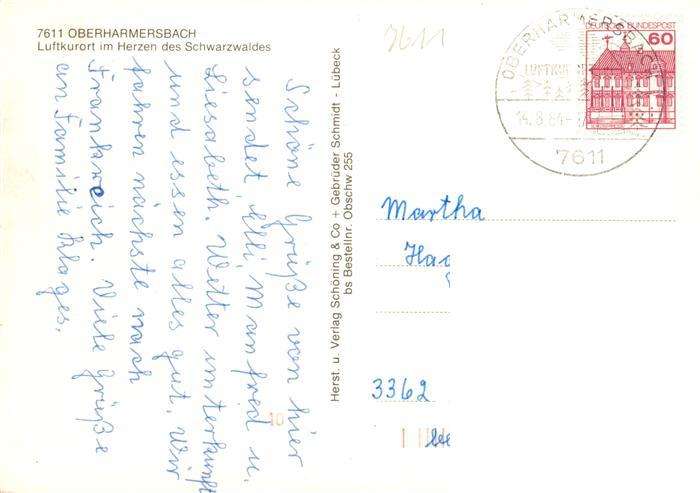 7611 OBERHARMERSBACH
Luftkurort im Herzen des Schwarzwaldes
7611
Schöne Grüße von hier
sendet Elli, Manfred u.
Liesabeth. Wetter, unterkunft
und essen alles gut. Wir
fahren nächste nach
Frankreich. Viele Grüße
an Familie Klages.
Herst. u. Verlag Schöning & Co + Gebrüder Schmidt - Lübeck
bs Bestellnr. Obschw 255
DEUTSCHE BUNDESPOST
60
OBERHARMERSBACH
LUFTKUR
14.8.84
7611
Martha
Hag
3362
10